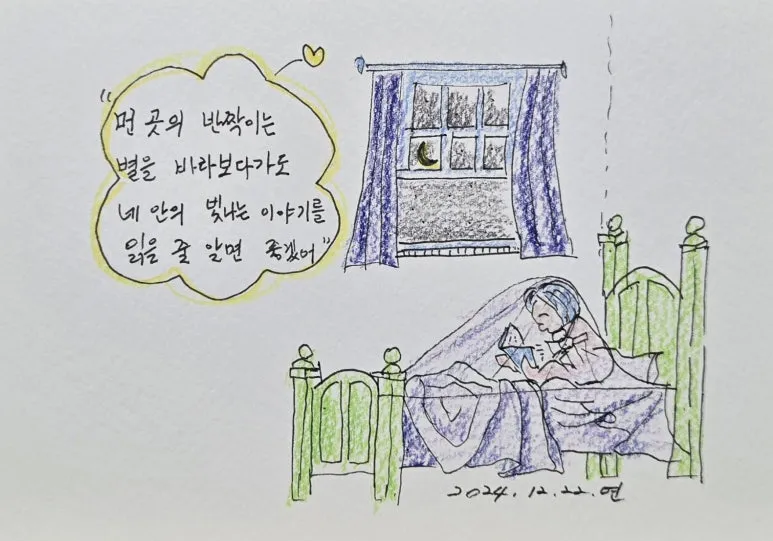 "먼 곳의 반짝이는
별을 바라보다가도
네 안의 빛나는 이야기를
읽을 줄 알면 좋겠어"
2024. 12. 22. 연